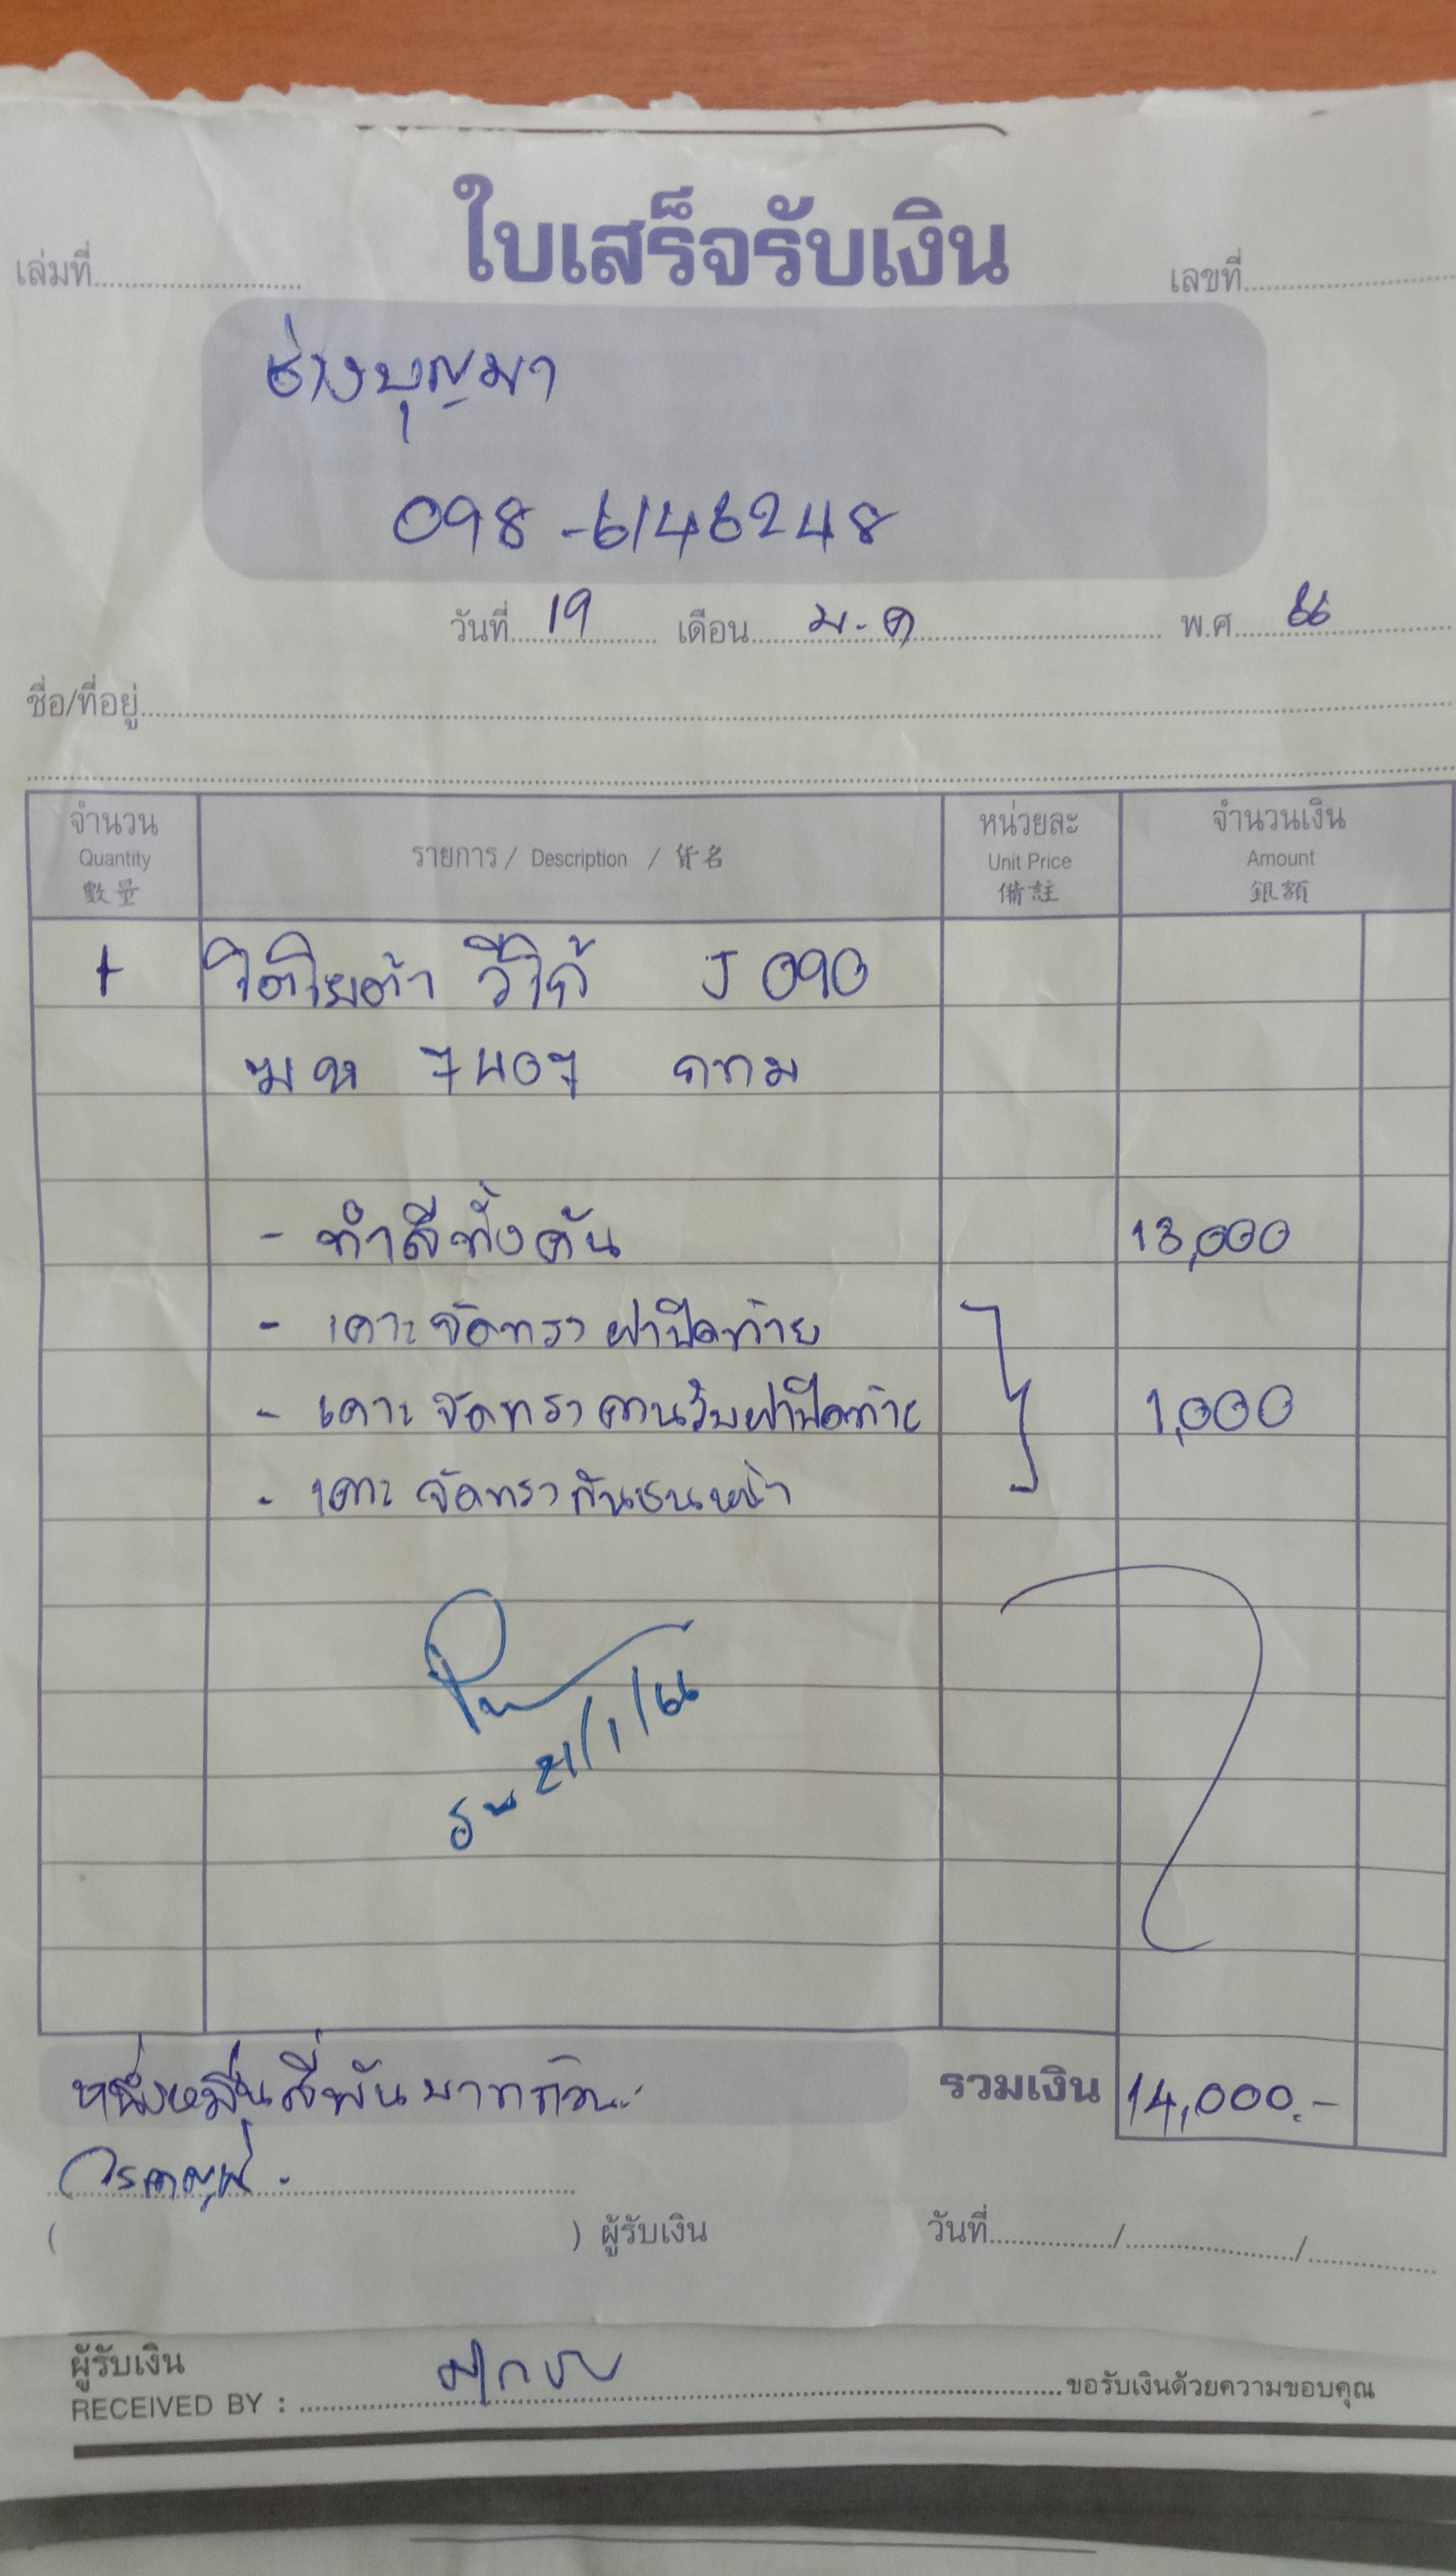 ใบเสร็จรับเงิน
เล่มที่ เลขที่
ช่างบุญมา
098-6146248
วันที่ 19 เดือน ม.ค พ.ศ. 66
ชื่อ/ที่อยู่
จำนวน หน่วยละ จำนวนเงิน
Quantity รายการ / Description / 貨名 Unit Price Amount
數量 備註 銀額
1 โตโยต้า วีโก้ J 090
ฒห 7407 กทม
- ทำสีทั้งคัน 13,000
- เคาะจัดทรง ฝาปิดท้าย
- เคาะ จัดทรง คานรับฝาปิดท้าย 1,000
- เคาะ จัดทรง กันชนหน้า
21/1/66
หนึ่งหมื่นสี่พันบาทถ้วน รวมเงิน 14,000.-
( ) ผู้รับเงิน วันที่ / /
ผู้รับเงิน
RECEIVED BY : ขอรับเงินด้วยความขอบคุณ